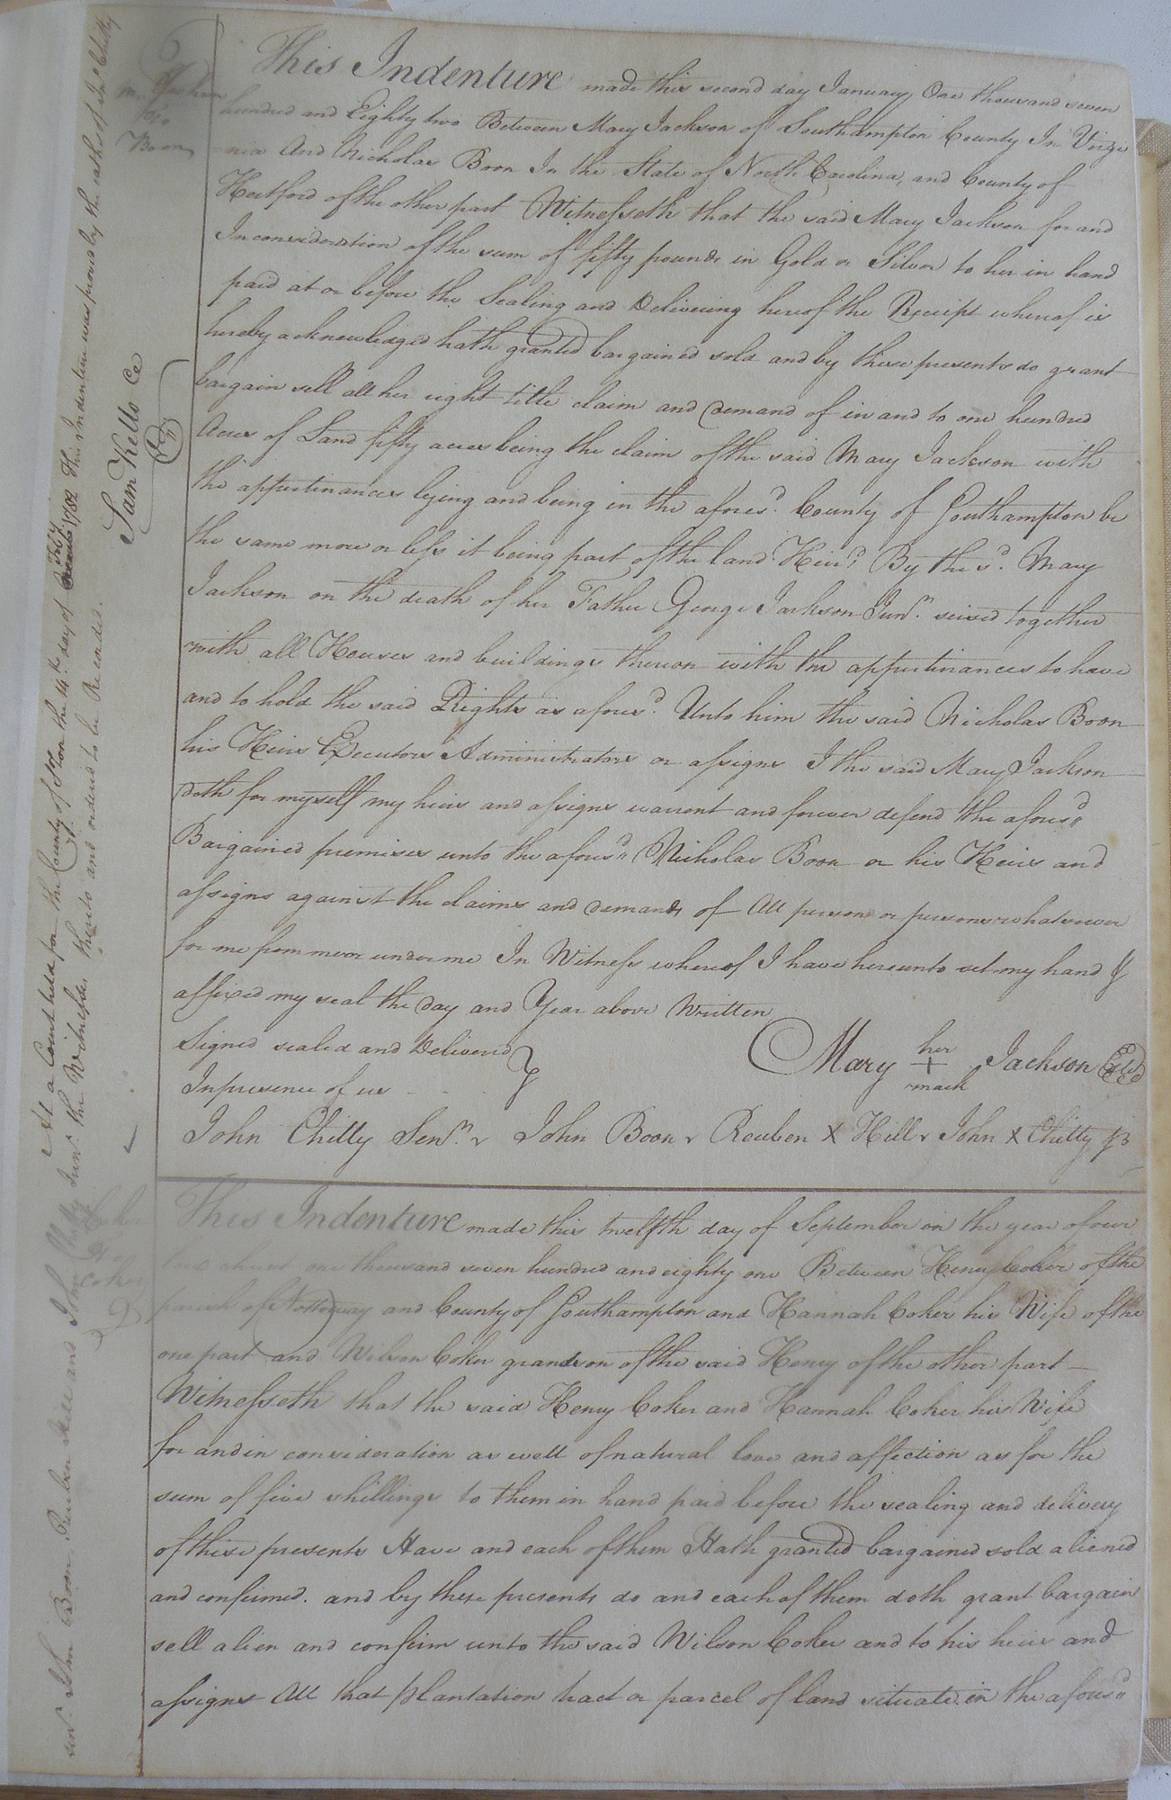 This Indenture made this second day January One thousand seven
hundred and Eighty two Between Mary Jackson of Southampton County In Virgi
nia And Nicholas Boon In the State of North Carolina, and County of
Hertford of the other part Witnesseth that the said Mary Jackson for and
In consideration of the sum of fifty pounds in Gold or Silver to her in hand
paid at or before the Sealing and Delivering hereof the Receipt whereof is
hereby acknowledged hath granted bargained sold and by these presents do grant
bargain sell all her right title claim and demand of in and to one hundred
Acres of Land fifty acres being the claim of the said Mary Jackson with
the appurtinances lying and being in the afores.d County of Southampton be
the same more or less it being part of the land Heir'd By the s.d Mary
Jackson on the death of her Father George Jackson Jun.r seized together
with all Houses and buildings thereon with the appurtinances to have
and to hold the said Rights as afores.d Unto him the said Nicholas Boon
his Heirs Executors Administrators or assigns I the said Mary Jackson
doth for myself my heirs and assigns warrent and forever defend the afores.d
Bargained premises unto the afores.d Nicholas Boon or his Heirs and
assigns against the claims and demands of All person or persons whatsoever
for me from me or under me In Witness whereof I have hereunto set my hand &
affixed my seal the day and Year above Written
Signed sealed and Delivered
In presence of us
Mary her + mark Jackson
John Chitty Sen.r John Boon Reuben X Hill John X Chitty Jr
This Indenture made this twelfth day of September in the year of our
one thousand seven hundred and eighty one Between Henry Coker of the
parish of Nottoway and County of Southampton and Hannah Coker his Wife of the
one part and Wilson Coker grandson of the said Henry of the other part
Witnesseth that the said Henry Coker and Hannah Coker his Wife
for and in consideration as well of natural love and affection as for the
sum of five shillings to them in hand paid before the sealing and delivery
of these presents Have and each of them Hath granted bargained sold aliened
and confirmed. and by these presents do and each of them doth grant bargain
sell alien and confirm unto the said Wilson Coker and to his heirs and
assigns All that plantation tract or parcel of land situate in the afores.d
Jackson
to
Boon
Coker
to
Coker
At a Court held for the County of Sthon the 14.th day of 1782 This Indenture was proved by the oaths of Jno Chitty
sen.r John Boon, Reuben Hill and John Chitty Jun.r the Witnesses thereto and ordered to be Recorded.
Sam Kello